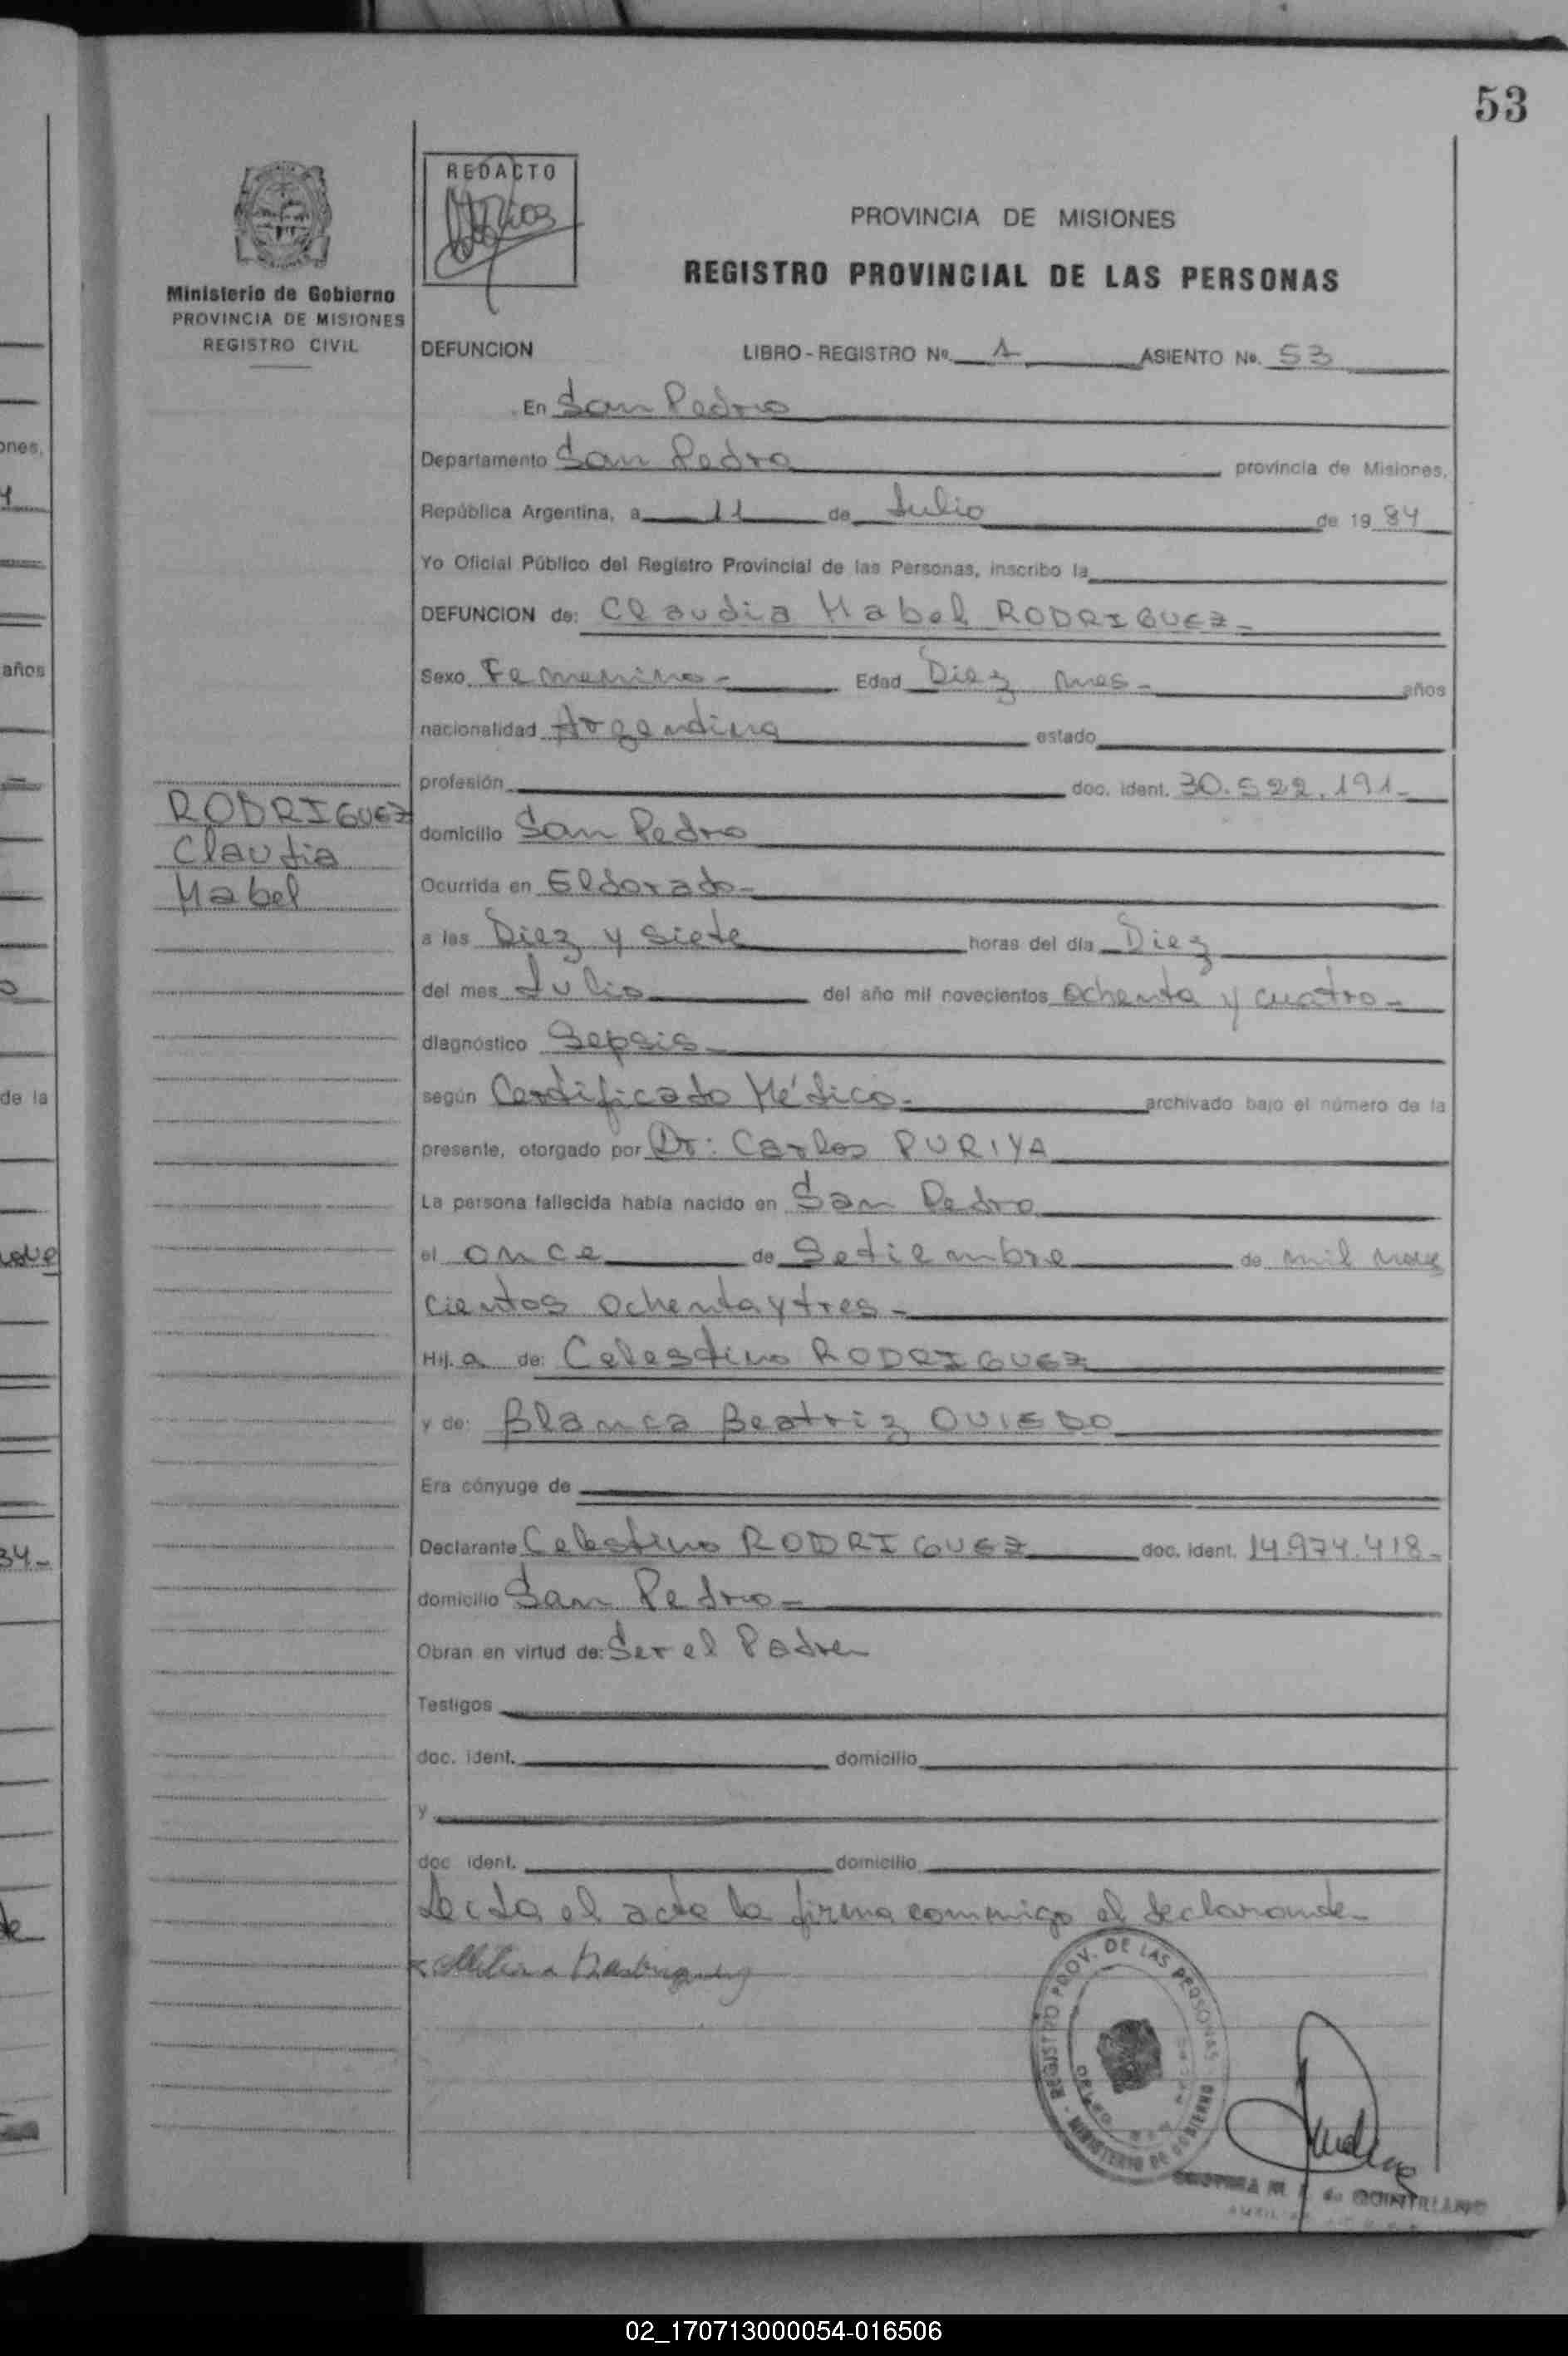 53
REDACTO
PROVINCIA DE MISIONES
REGISTRO PROVINCIAL DE LAS PERSONAS
Ministerio de Gobierno
PROVINCIA DE MISIONES
REGISTRO CIVIL
DEFUNCION LIBRO-REGISTRO Nº 1 ASIENTO Nº 53
En San Pedro
Departamento San Pedro provincia de Misiones,
República Argentina, a 11 de Julio de 19 84
Yo Oficial Público del Registro Provincial de las Personas, inscribo la
DEFUNCION de: Claudia Mabel RODRIGUEZ-
Sexo Femenino- Edad Diez mes- años
nacionalidad Argentina estado
profesión doc. ident. 30.522.191-
RODRIGUEZ
Claudia
Mabel
domicilio San Pedro
Ocurrida en Eldorado-
a las Diez y siete horas del día Diez
del mes Julio del año mil novecientos ochenta y cuatro-
diagnóstico Sepsis-
según Certificado Médico- archivado bajo el número de la
presente, otorgado por Dr: Carlos PURIYA
La persona fallecida había nacido en San Pedro
el once de Setiembre de mil nove
cientos ochenta y tres-
Hij. a de: Celestino RODRIGUEZ
y de: Blanca Beatriz OVIEDO
Era cónyuge de
Declarante Celestino RODRIGUEZ doc. ident. 14.974.418-
domicilio San Pedro-
Obran en virtud de: Ser el Padre
Testigos
doc. ident. domicilio
y
doc ident. domicilio
Leida el acta la firma conmigo el declarante-
REGISTRO PROV. DE LAS PERSONAS - MINISTERIO DE GOBIERNO
de QUINTELIANO
02_170713000054-016506
años
de la
34-